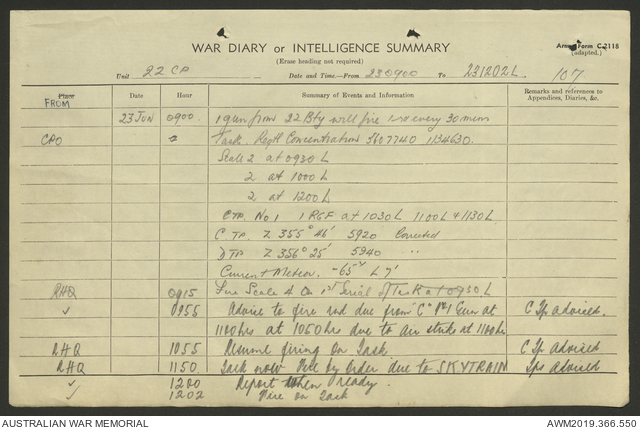 WAR DIARY or INTELLIGENCE SUMMARY
Army Form C.2118
(Erase heading not required)
(adapted.)
Unit 22 CP Date and Time.—From 230900 To 231202L 107
Place Date Hour Summary of Events and Information Remarks and references to
FROM Appendices, Diaries, &c.
23 Jun 0900 1 gun from 22 Bty will fire 1 rd every 30 mins
CPO Task. Regtl Concentrations 3607740 1134630.
Scale 2 at 0930 L
2 at 1000 L
2 at 1200 L
CTP. No 1 1 RGF at 1030 L 1100 L & 1130 L
C. TP. Z 355° 46' 5920 Corrected
D TP Z 356° 25' 5940 "
Current Meteor. L 7'
RHQ 0915 Fire Scale 4 On 1st Serial of Task at 0930 L
✓ 0955 Advise to fire rd due from "C" No 1 Gun at C Tp advised.
1100 hrs at 1050 hrs due to air strike at 1100 hrs
RHQ 1055 Resume firing On Task C Tp advised
RHQ 1150 Task now Fire by Order due to SKYTRAIN Tps advised
✓ 1200 Report when ready.
✓ 1202 Fire on Task
AUSTRALIAN WAR MEMORIAL AWM2019.366.550